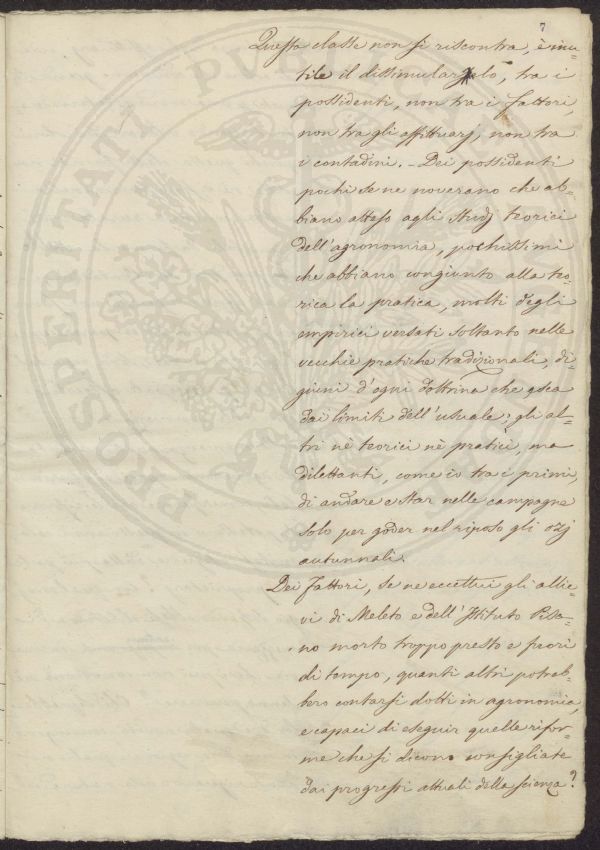 7
Questa classe non si riscontra, è inu-
tile il dissimularselo, tra i
possidenti, non tra i fattori,
non tra gli affittuarj, non tra
i contadini. - Dei possidenti
pochi se ne noverano che ab-
biano atteso agli studj teorici
dell'agronomia, pochissimi
che abbiano congiunto alla teo-
rica la pratica, molti degli
empirici versati soltanto nelle
vecchie pratiche tradizionali, di-
giuni d'ogni dottrina che esca
dai limiti dell'usuale; gli al-
tri nè teorici nè pratici, ma
dilettanti, come io tra i primi,
di andare e star nelle campagne
solo per goder nel riposo gli ozj
autunnali.
Dei Fattori, se ne eccettui gli allie-
vi di Meleto e dell'Istituto Pisa-
no morto troppo presto e fuori
di tempo, quanti altri potreb-
bero contarsi dotti in agronomia,
e capaci di eseguir quelle rifor-
me che si dicono consigliate
dai progressi attuali della scienza?
PROSPERITATI PUBLICAE